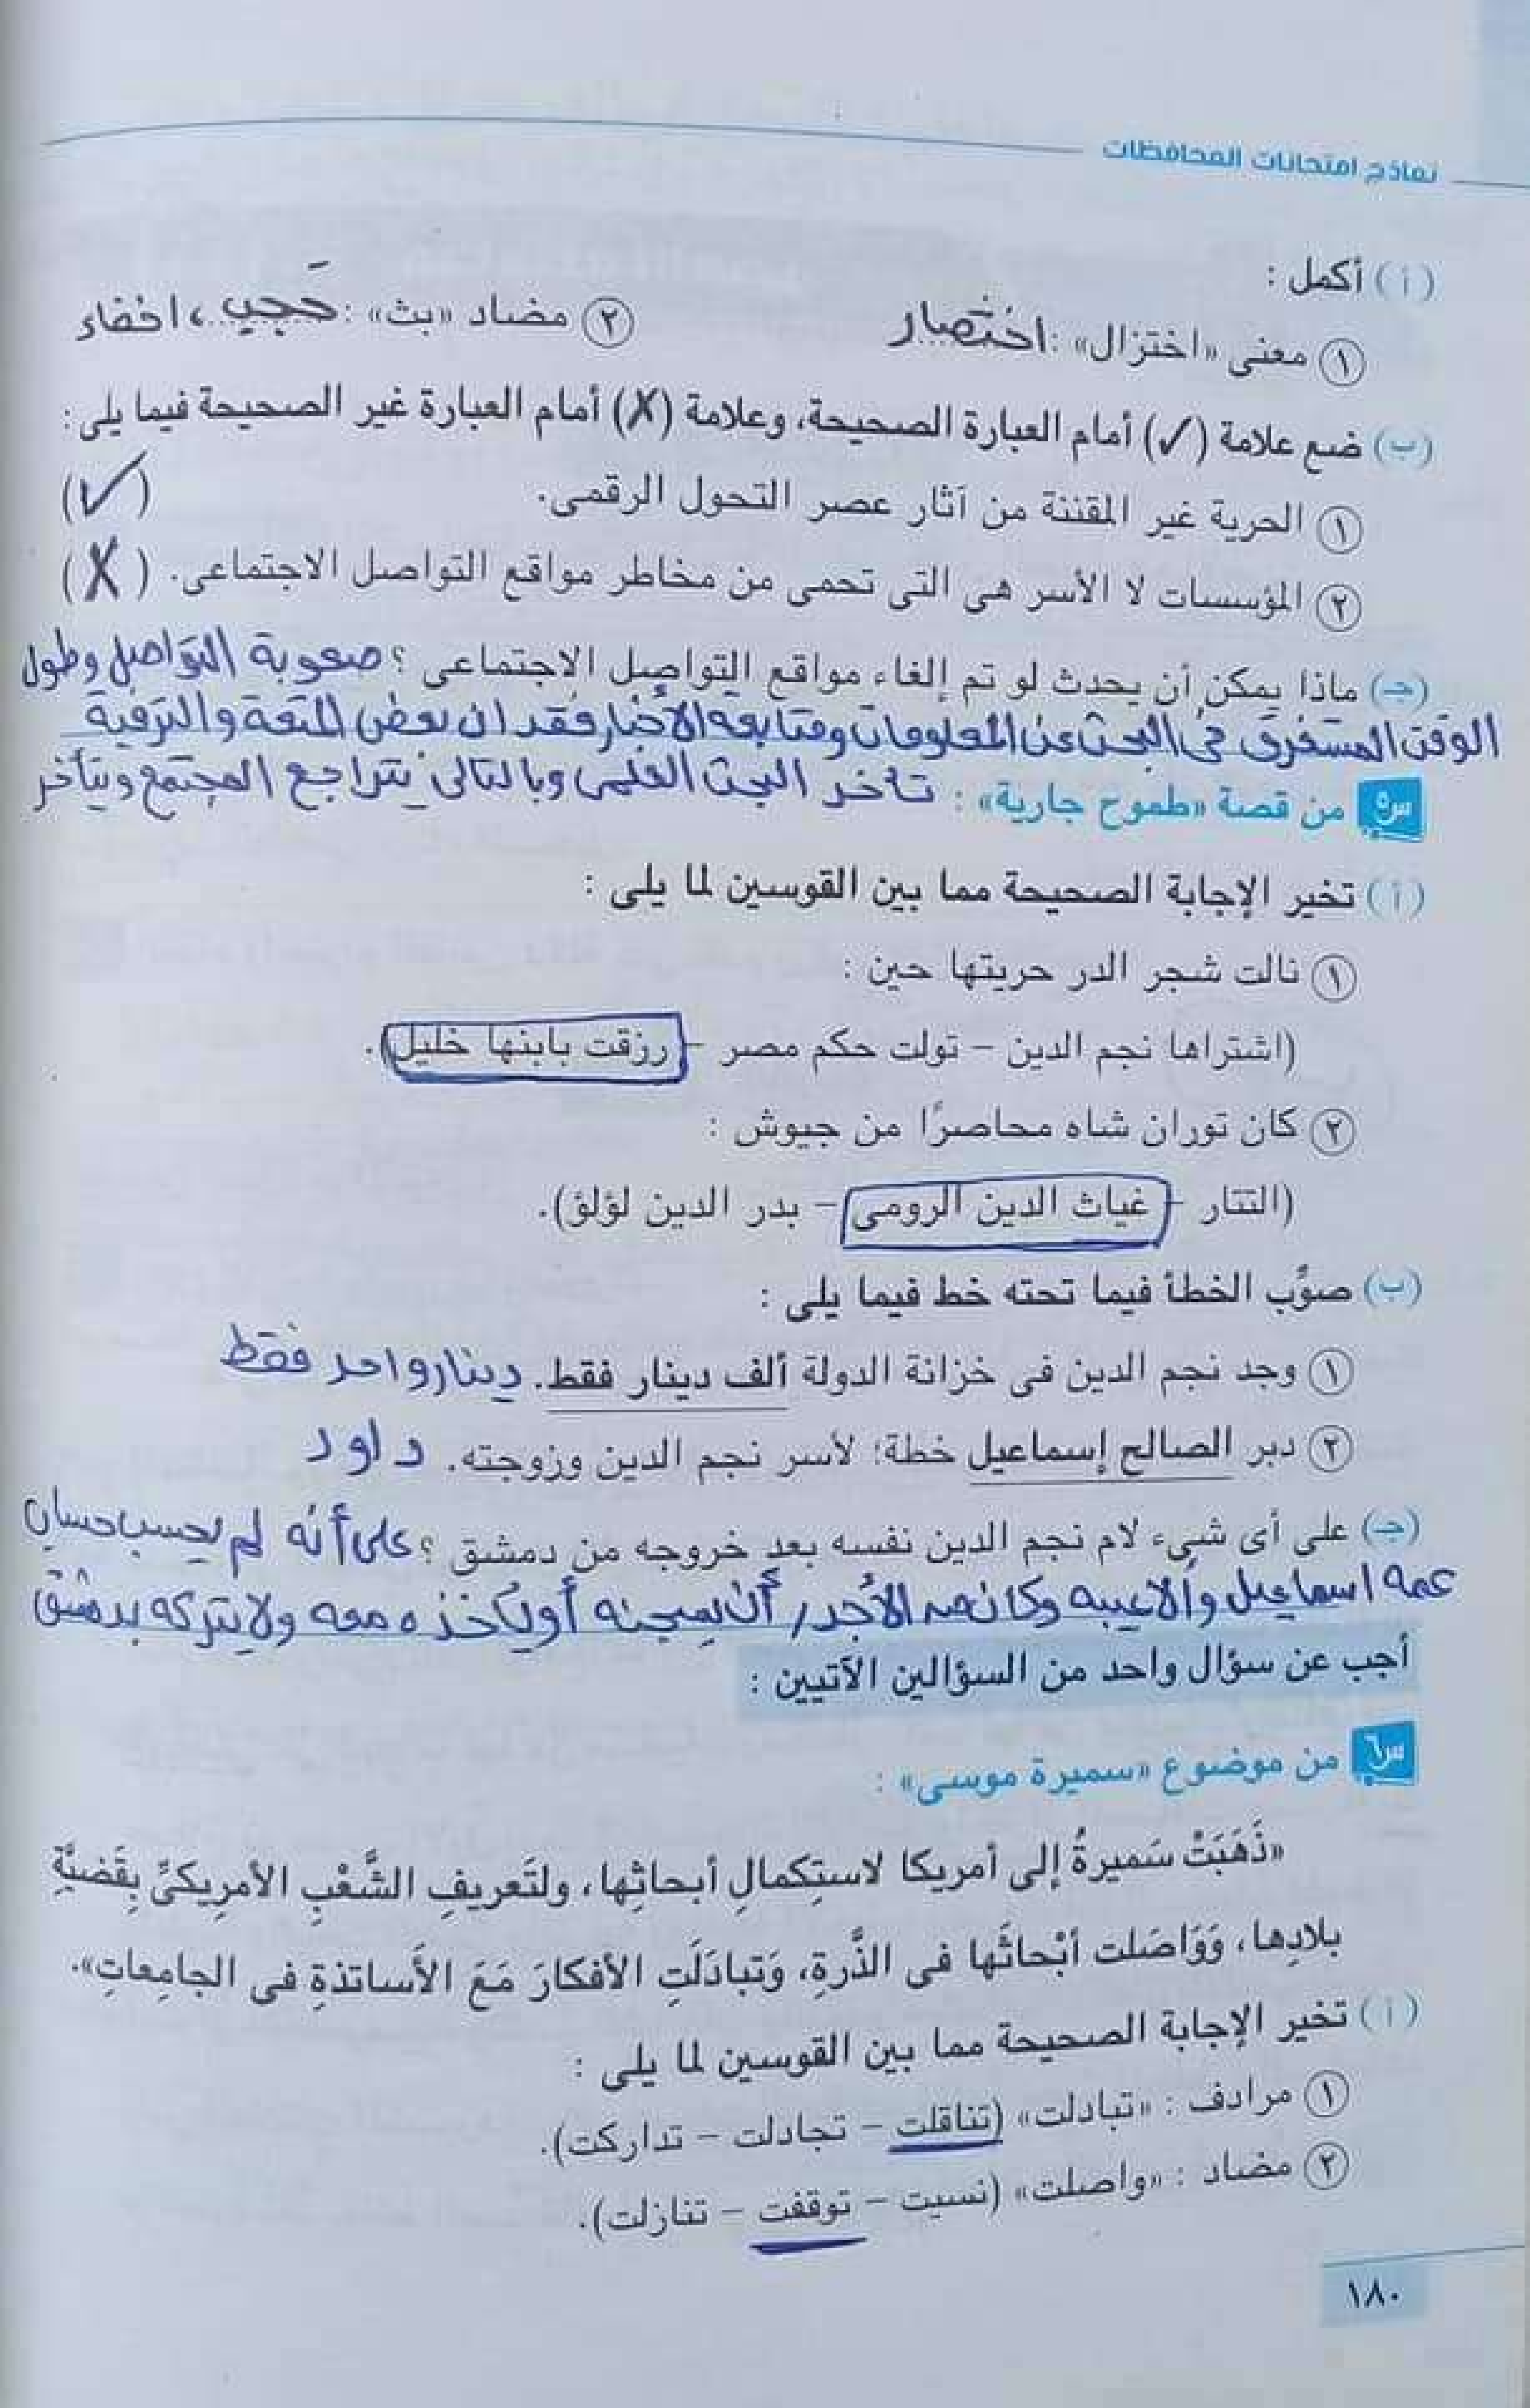 نماذج امتحانات المحافظات
(أ) أكمل :
١ معنى «اختزال» : اختصار ٢ مضاد «بث» : حَجب ، اخفاء
(ب) ضع علامة (✓) أمام العبارة الصحيحة، وعلامة (X) أمام العبارة غير الصحيحة فيما يلى :
١ الحرية غير المقننة من آثار عصر التحول الرقمى. (✓)
٢ المؤسسات لا الأسر هى التى تحمى من مخاطر مواقع التواصل الاجتماعى. (X)
(جـ) ماذا يمكن أن يحدث لو تم إلغاء مواقع التواصل الاجتماعى ؟ صعوبة التواصل وطول
الوقت المستغرق فى البحث عن المعلومات ومتابعة الأخبار فقدان بعض المتعة والترفية
س٥ من قصة «طموح جارية» : تأخر البحث العلمى وبالتالى يتراجع المجتمع ويتأخر
(أ) تخير الإجابة الصحيحة مما بين القوسين لما يلى :
١ نالت شجر الدر حريتها حين :
(اشتراها نجم الدين – تولت حكم مصر – رزقت بابنها خليل).
٢ كان توران شاه محاصرًا من جيوش :
(التتار – غياث الدين الرومى – بدر الدين لؤلؤ).
(ب) صوِّب الخطأ فيما تحته خط فيما يلى :
١ وجد نجم الدين فى خزانة الدولة ألف دينار فقط. دينار واحد فقط
٢ دبر الصالح إسماعيل خطة؛ لأسر نجم الدين وزوجته. داود
(جـ) على أى شىء لام نجم الدين نفسه بعد خروجه من دمشق ؟ على أنه لم يحسب حساب
عمه اسماعيل وألاعيبه وكان من الأجدر أن يسجنه أو يأخذه معه ولا يتركه بدمشق
أجب عن سؤال واحد من السؤالين الآتيين :
س٦ من موضوع «سميرة موسى» :
«ذَهَبَتْ سَميرةُ إلى أمريكا لاستِكمالِ أبحاثِها، ولتَعريفِ الشَّعْبِ الأمرِيكىِّ بِقَضيَّةِ
بلادِها، وَوَاصَلت أبْحاثَها فى الذَّرةِ، وَتبادَلَتِ الأفكارَ مَعَ الأَساتذةِ فى الجامِعاتِ».
(أ) تخير الإجابة الصحيحة مما بين القوسين لما يلى :
١ مرادف : «تبادلت» (تناقلت – تجادلت – تداركت).
٢ مضاد : «واصلت» (نسيت – توقفت – تنازلت).
١٨٠